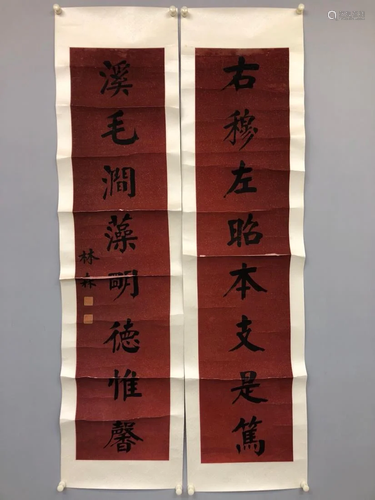 右穆左昭本支是篤
溪毛澗藻明德惟馨
林森